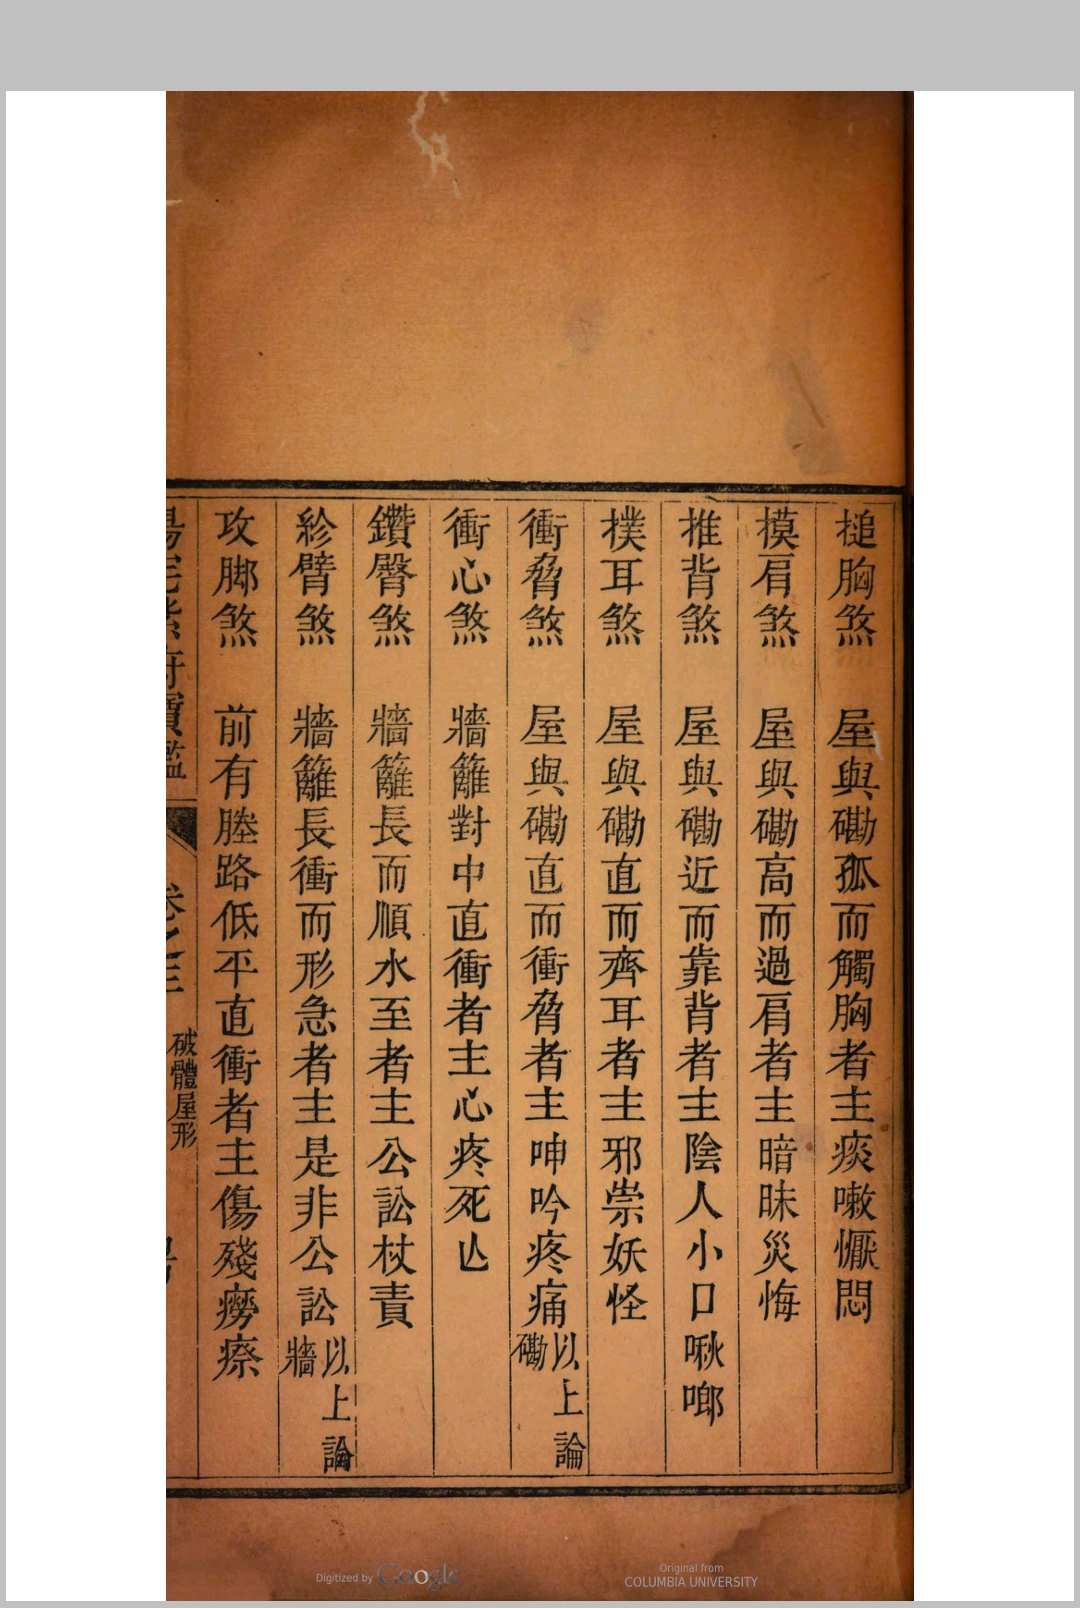 搥胸煞　屋與磡孤而觸胸者主痰嗽懨悶
摸肩煞　屋與磡高而過肩者主暗昧災悔
推背煞　屋與磡近而靠背者主陰人小口啾唧
撲耳煞　屋與磡直而齊耳者主邪祟妖怪
衝脅煞　屋與磡直而衝脅者主呻吟疼痛以上論磡
衝心煞　牆籬對中直衝者主心疼死亾
鑽臀煞　牆籬長而順水至者主公訟杖責
紾臂煞　牆籬長衝而形急者主是非公訟以上論牆
攻脚煞　前有塍路低平直衝者主傷殘癆瘵
陽宅紫府寶鑑　卷之三　破體屋形
Digitized by Google
Original from
COLUMBIA UNIVERSITY